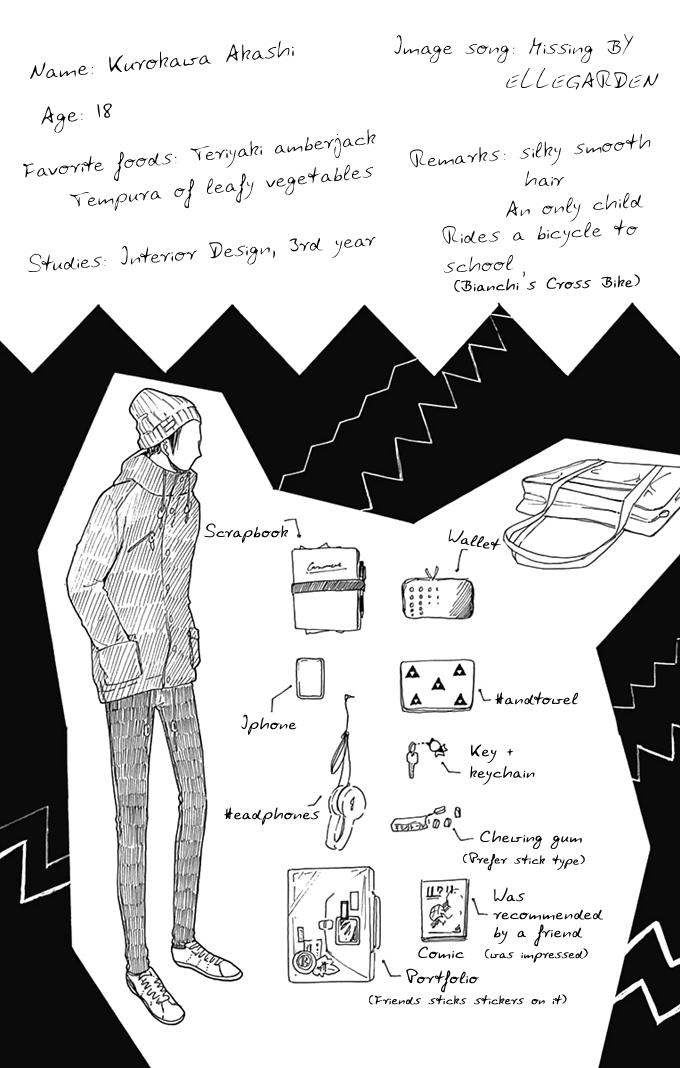 Name: Kurokawa Akashi
Age: 18
Favorite foods: Teriyaki amberjack
Tempura of leafy vegetables
Studies: Interior Design, 3rd year
Image song: Missing BY
ELLEGARDEN
Remarks: silky smooth
hair
An only child
Rides a bicycle to
school,
(Bianchi's Cross Bike)
Scrapbook
Wallet
Iphone
Handtowel
Key +
keychain
Headphones
Chewing gum
(Prefer stick type)
Was
recommended
by a friend
(was impressed)
Comic
Portfolio
(Friends sticks stickers on it)